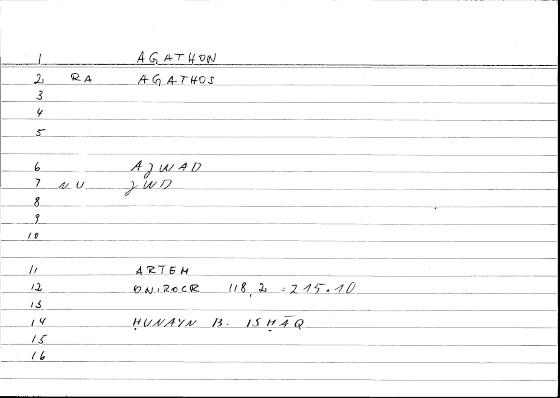 1 AGATHON
2 RA AGATHOS
3
4
5
6 AJWAD
7 NU JWD
8
9
10
11 ARTEM
12 ONIROCR 118,2 = 215.10
13
14 ḤUNAYN B. ISḤĀQ
15
16